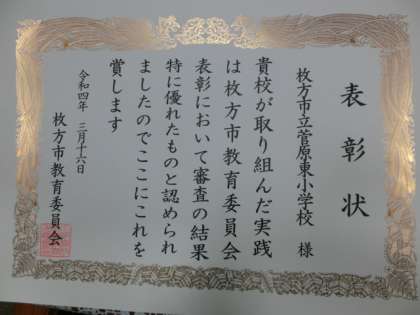 表彰状
枚方市立菅原東小学校 様
貴校が取り組んだ実践
は枚方市教育委員会
表彰において審査の結果
特に優れたものと認められ
ましたのでここにこれを
賞します
令和四年 三月十六日
枚方市教育委員会